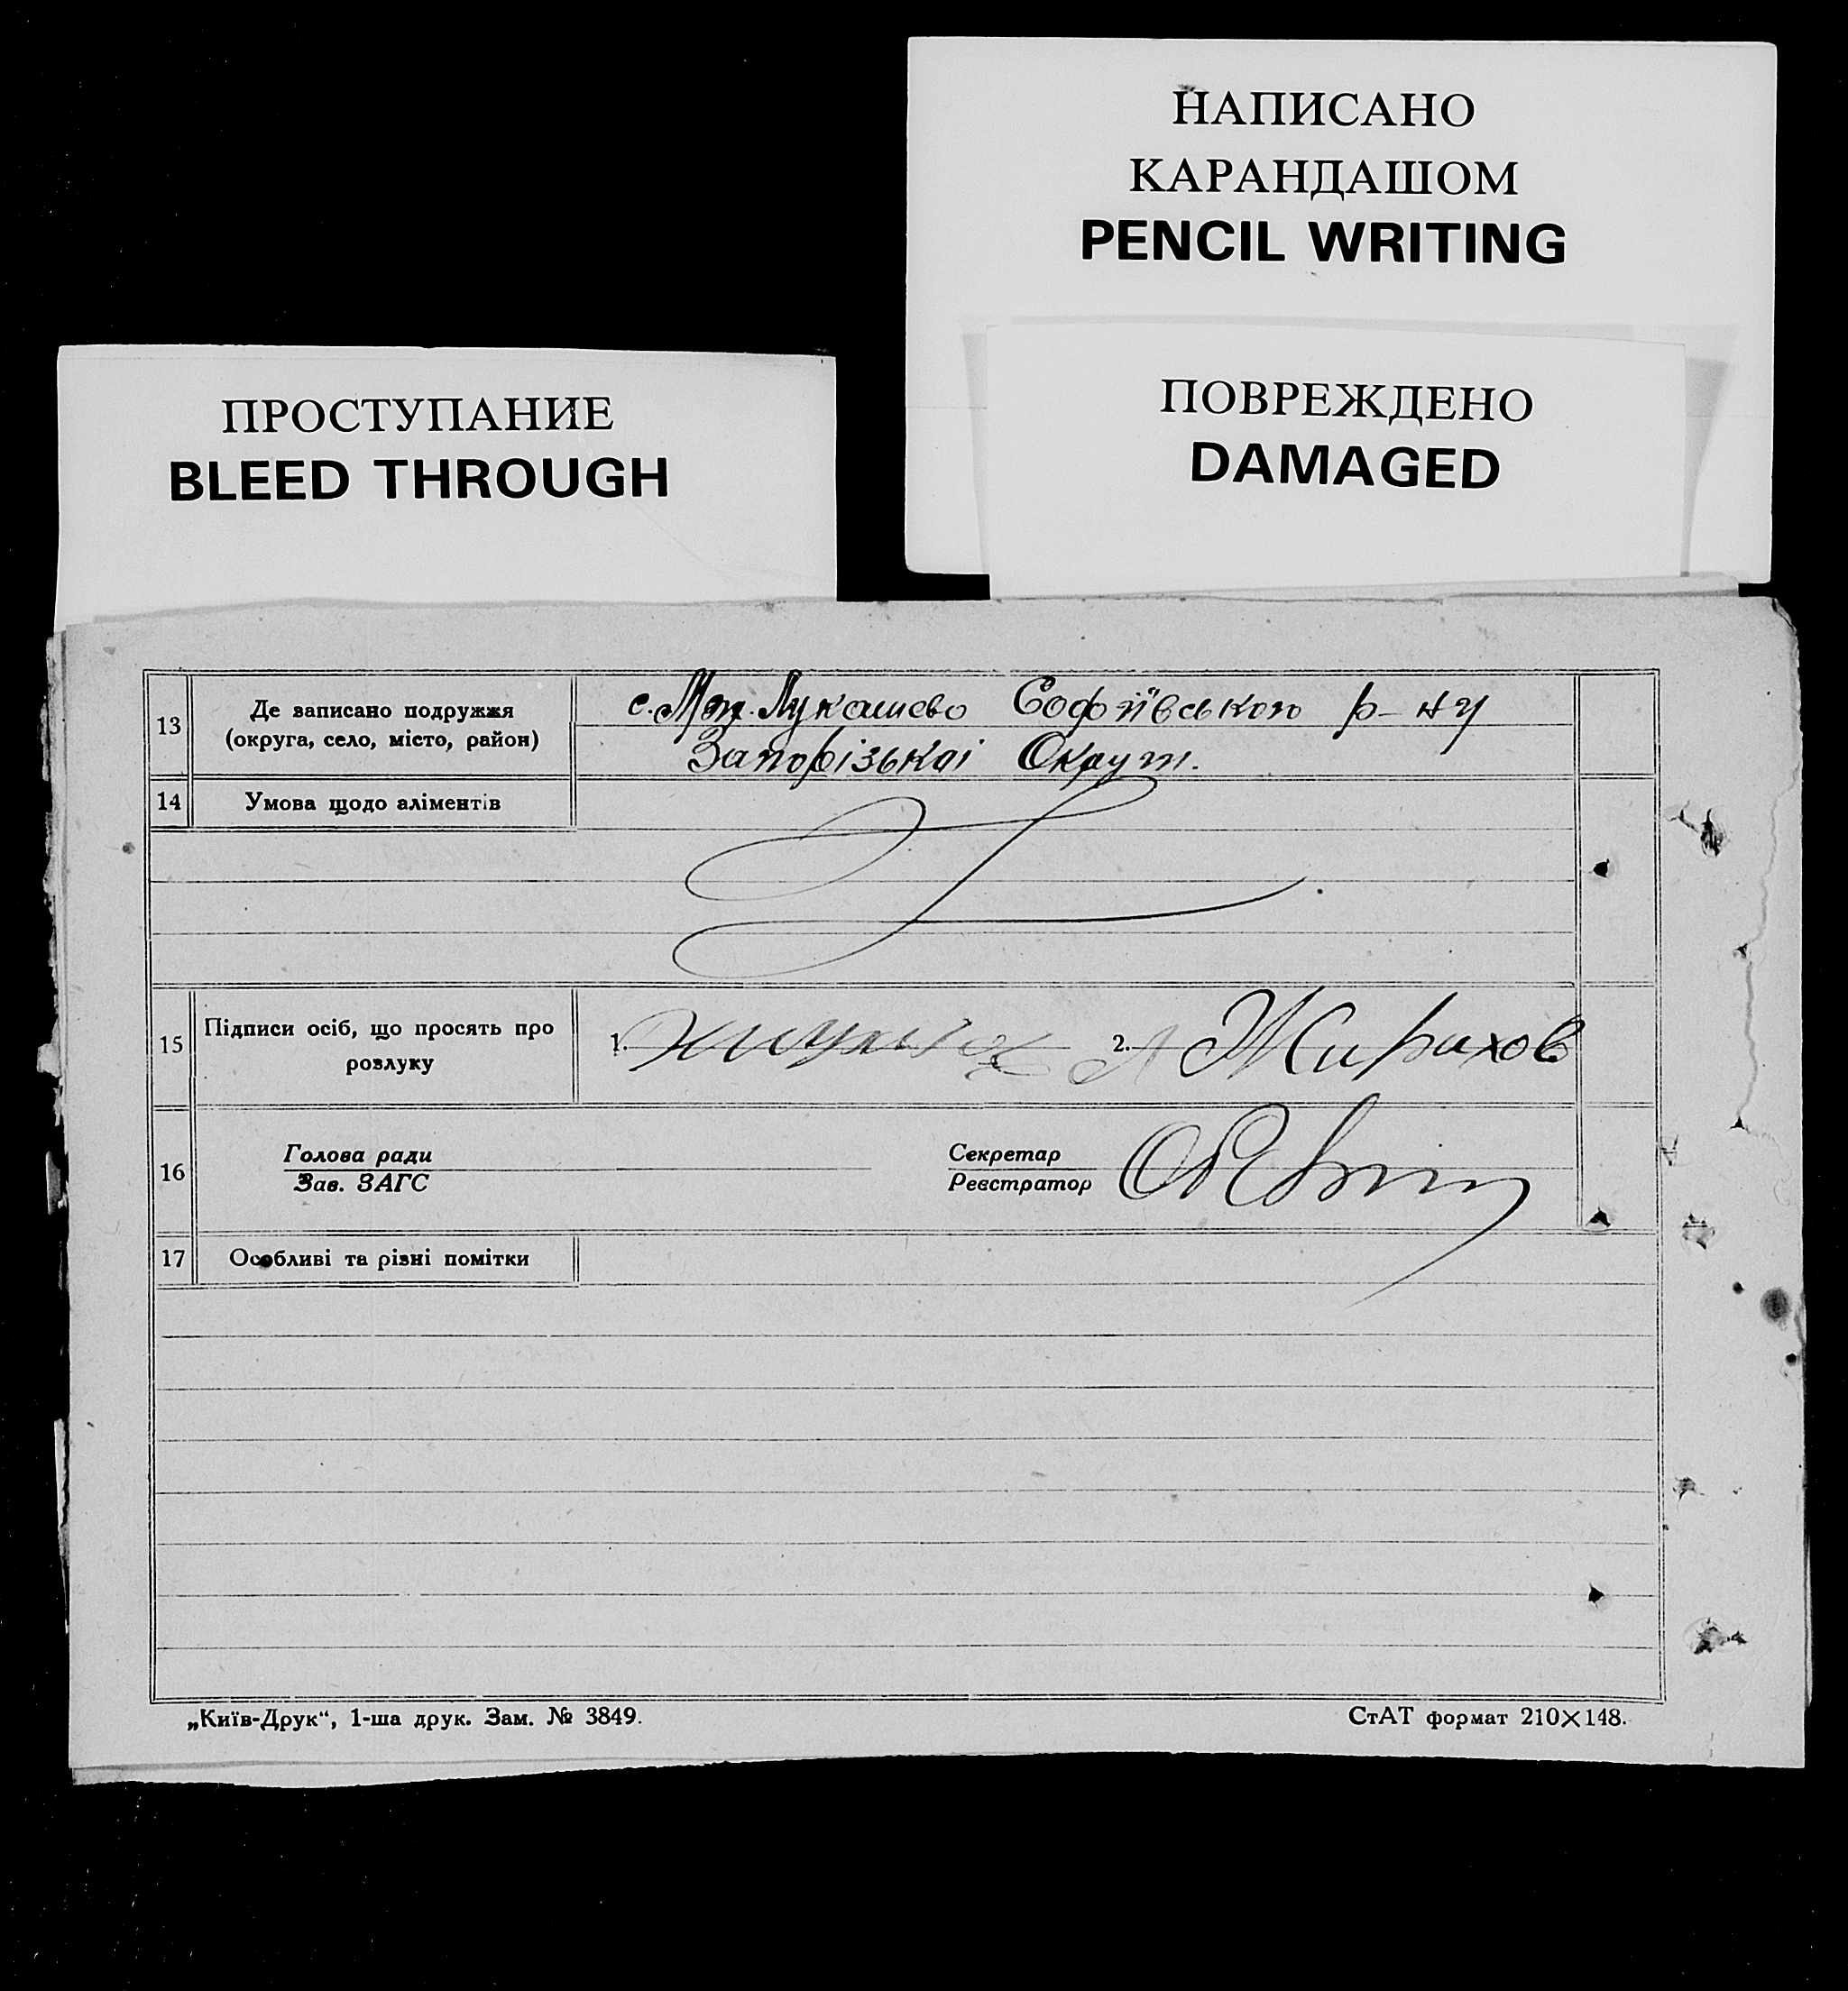 НАПИСАНО
КАРАНДАШОМ
PENCIL WRITING
ПРОСТУПАНИЕ
BLEED THROUGH
ПОВРЕЖДЕНО
DAMAGED
13 Де записано подружжя
(округа, село, місто, район)
с. Лукашево Софіївського р-ну
Запорізької Округи.
14 Умова щодо аліментів
15 Підписи осіб, що просять про
розлуку
1. 2. Жирахов
16 Голова ради
Зав. ЗАГС
Секретар
Реєстратор
17 Особливі та різні помітки
„Київ-Друк“, 1-ша друк. Зам. № 3849.
СтАТ формат 210×148.